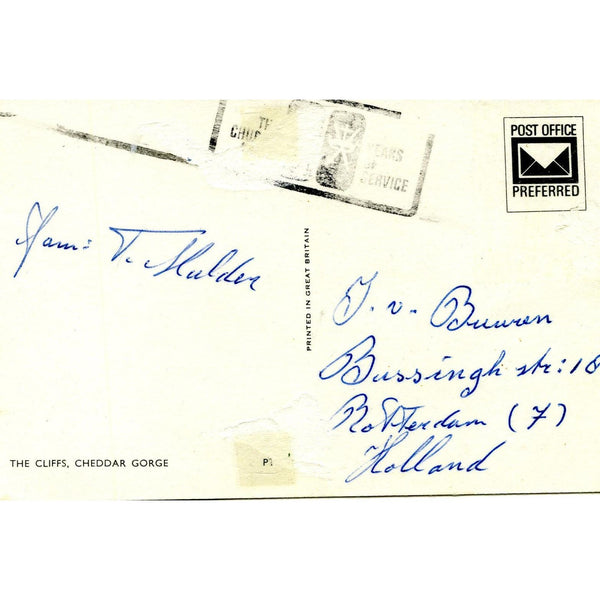 TH
CHU
YEARS
OF
SERVICE
POST OFFICE
PREFERRED
Fam: T. Mulder
PRINTED IN GREAT BRITAIN
J. v. Buuren
Bussingh str: 18
Rotterdam (7)
Holland
THE CLIFFS, CHEDDAR GORGE